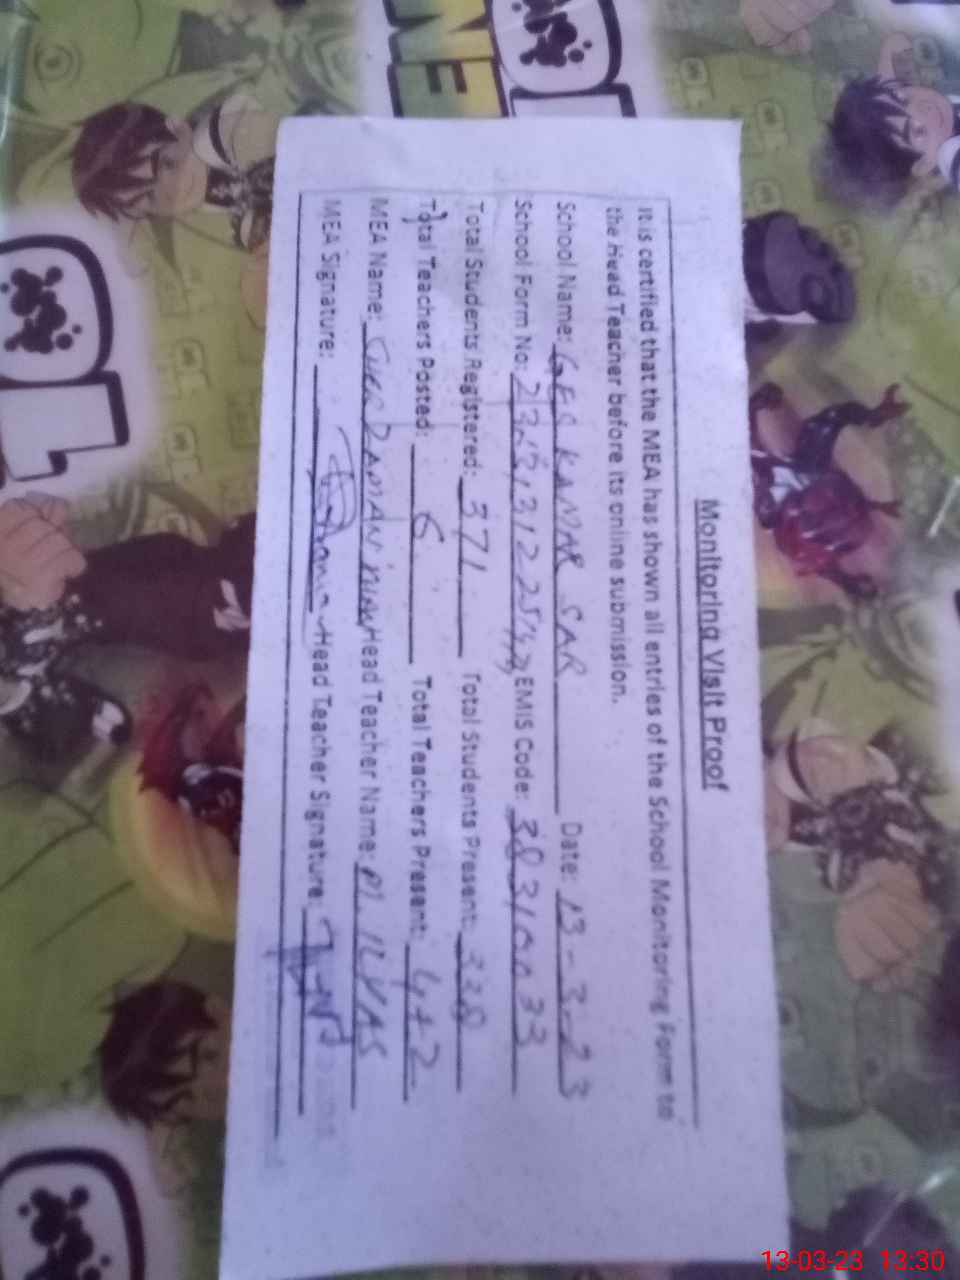 Monitoring Visit Proof
It is certified that the MEA has shown all entries of the School Monitoring Form to
the Head Teacher before its online submission.
School Name: GES KANAR SAR Date: 13-3-23
School Form No: EMIS Code:
Total Students Registered: 371 Total Students Present: 338
Total Teachers Posted: 6 Total Teachers Present: 4+2
MEA Name: Head Teacher Name: M. ILYAS
MEA Signature: Head Teacher Signature:
13-03-23 13:30